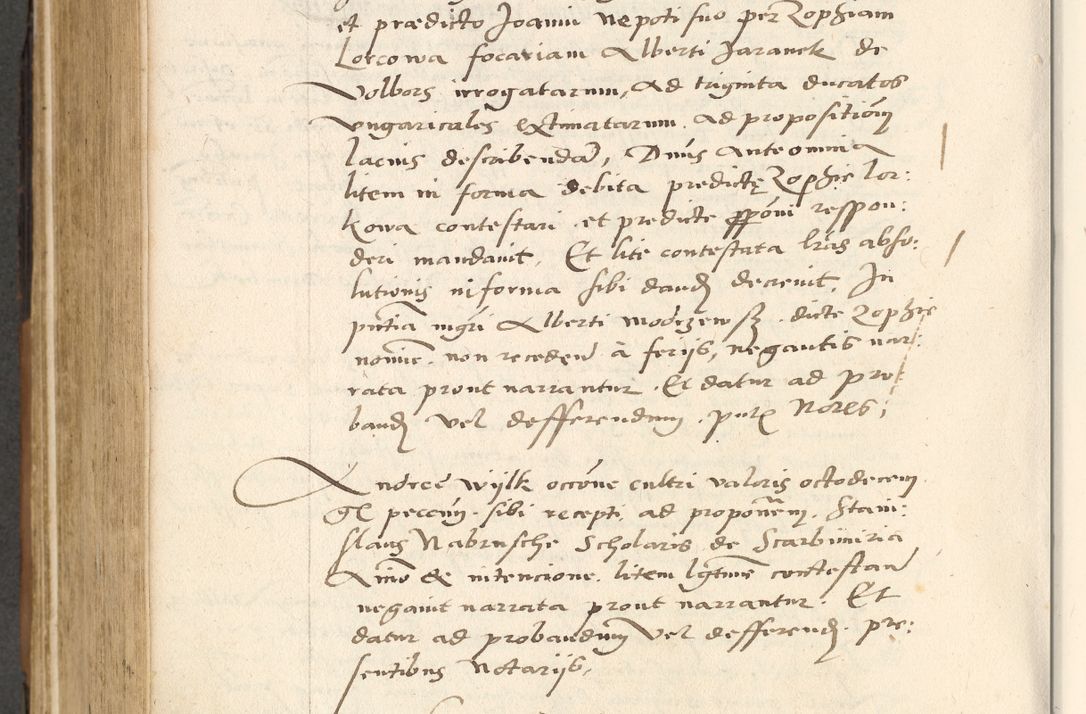 et prædicto Joanni nepoti suo per Zophiam
Lorcowa focariam Alberti Jaranek de
Volbors irrogatarum, ad triginta ducatos
ungaricales extimatarum. ad propositioēm
lacius describendā, Dnūs ante omnia
litem in forma debita predictę Zophie Lor:
kowa contestari, et predicte pponi respon:
deri mandavit, Et lite contestata lrās abso:
lutionis in forma sibi dandɇ decrevit, In
pntia mgri Alberti Modrzewsky. dicte Zophie
nomine. non receden̄ à ferijs, negantis nar:
rata prout narrantur. Et datur ad pro:
band vel defferendum. pntℓ Nores;
Andreę Wijlk occōne cultri valoris octodecem
gℓ pecūm. sibi recepti. ad proponm̄, Stani:
slaus Nabrusche Scholaris de Scarbimiria
Animo et intencione. litem lgtme contestan̄
negavit narrata prout narrantur. Et
datur ad probandum vel defferend. pre:
sentibus Notarijs,